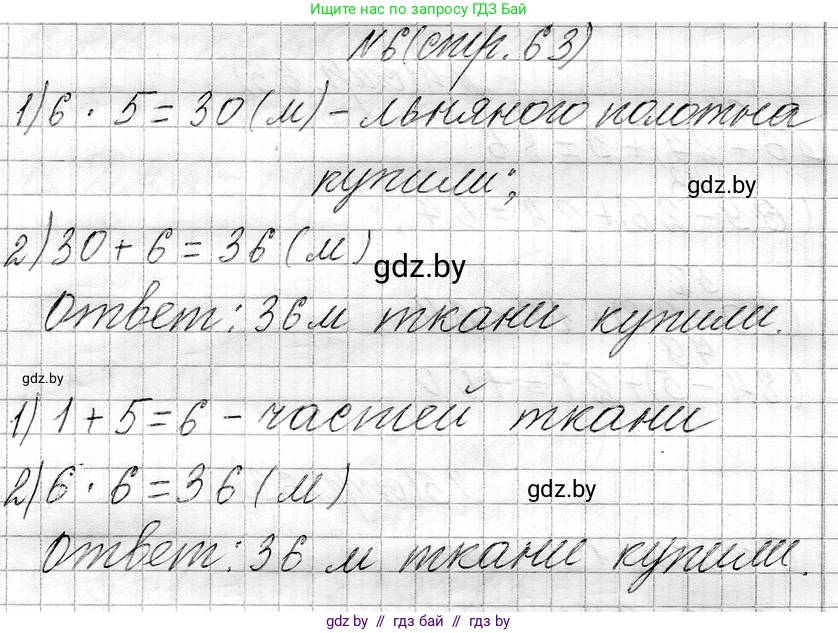 Ищите нас по запросу ГДЗ Бай
№6(стр. 63)
1) 6 · 5 = 30 (м) – льняного полотна
купили;
gdz.by
2) 30 + 6 = 36 (м)
gdz.by
Ответ: 36 м ткани купили.
gdz.by
1) 1 + 5 = 6 – частей ткани
2) 6 · 6 = 36 (м)
gdz.by
Ответ: 36 м ткани купили.
gdz.by // гдз бай // гдз by